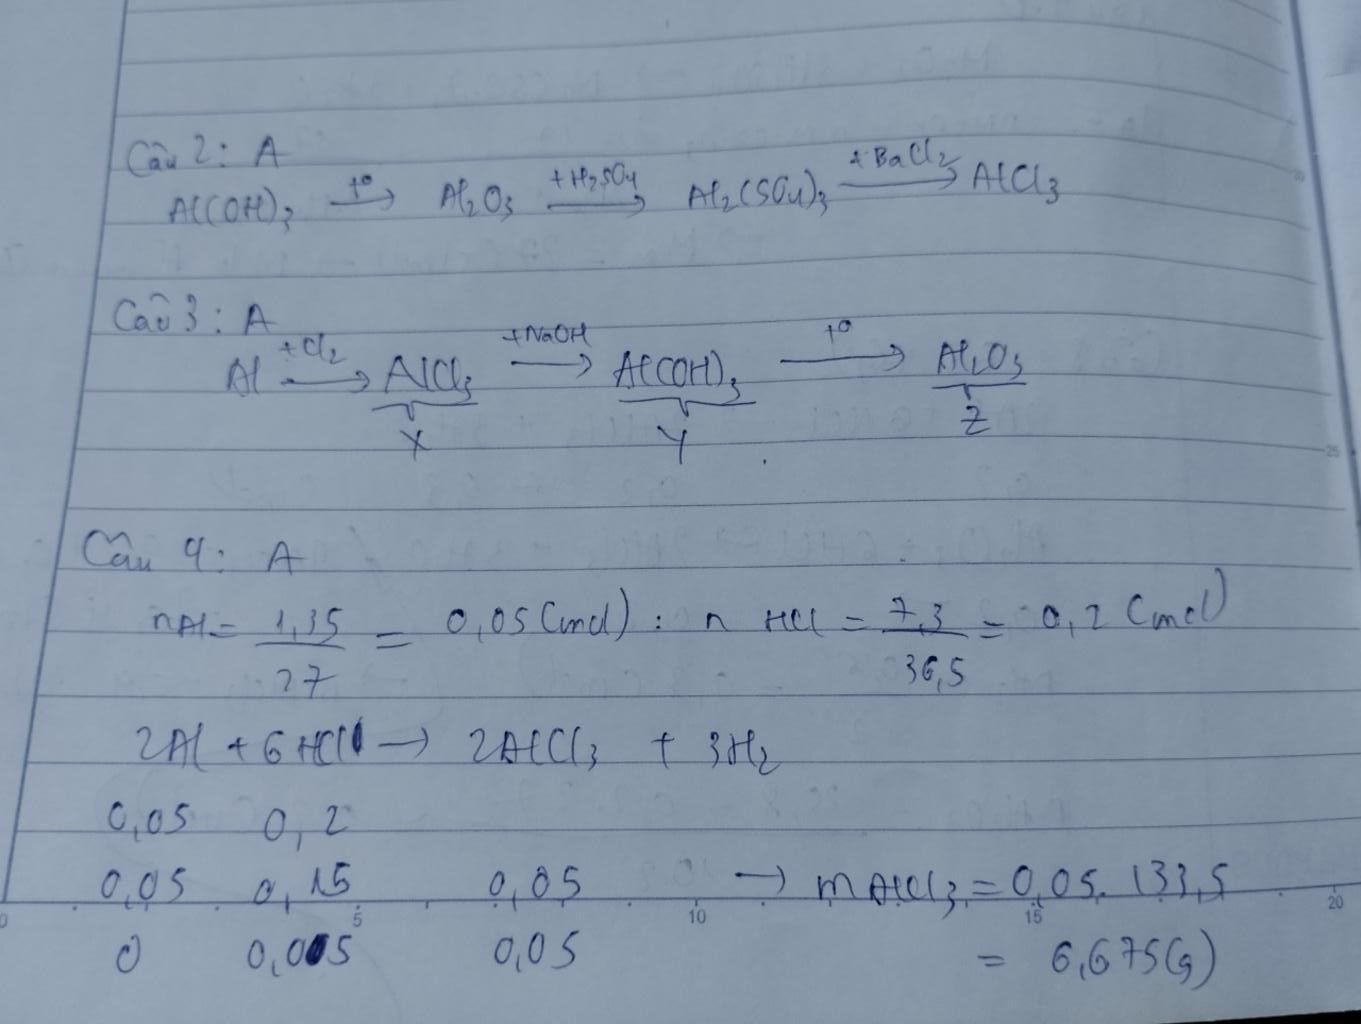 Câu 2: A
Al(OH)3 t° → Al2O3 +H2SO4 → Al2(SO4)3 +BaCl2 → AlCl3
Câu 3: A
Al +Cl2 → AlCl3 +NaOH → Al(OH)3 t° → Al2O3
X Y Z
Câu 4: A
nAl = 1,35 / 27 = 0,05 (mol) : n HCl = 7,3 / 36,5 = 0,2 (mol)
2Al + 6HCl → 2AlCl3 + 3H2
0,05 0,2
0,05 0,15 0,05 → mAlCl3 = 0,05. 133,5
0 5 10 15 20
0 0,05 0,05 = 6,675(g)
25